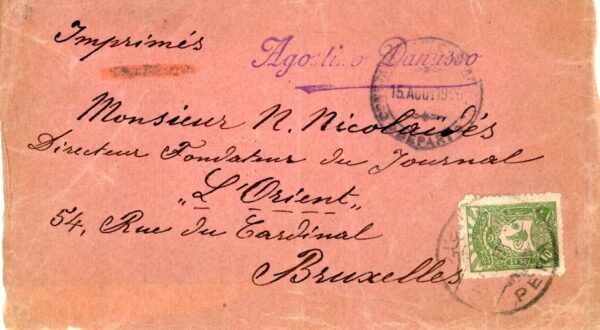 Imprimés
Agostino Danusso
15 AOUT 19
DEPART
Monsieur N. Nicolaïdés
Directeur Fondateur du Journal
„L'Orient„
54, Rue du Cardinal
Bruxelles
10
PE